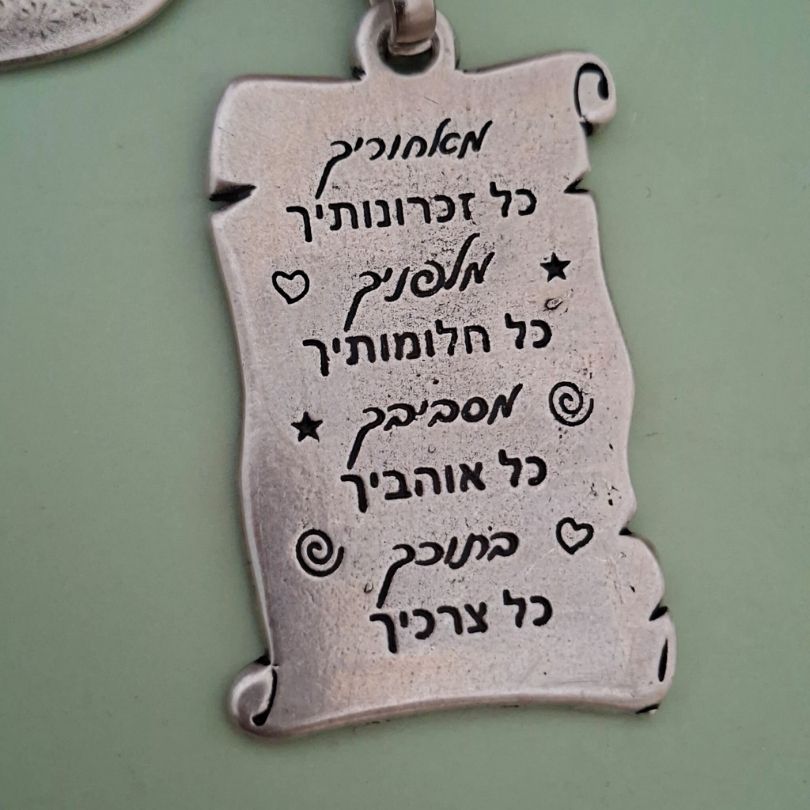 מאחוריך
כל זכרונותיך
מלפניך
כל חלומותיך
מסביבך
כל אוהביך
בתוכך
כל צרכיך